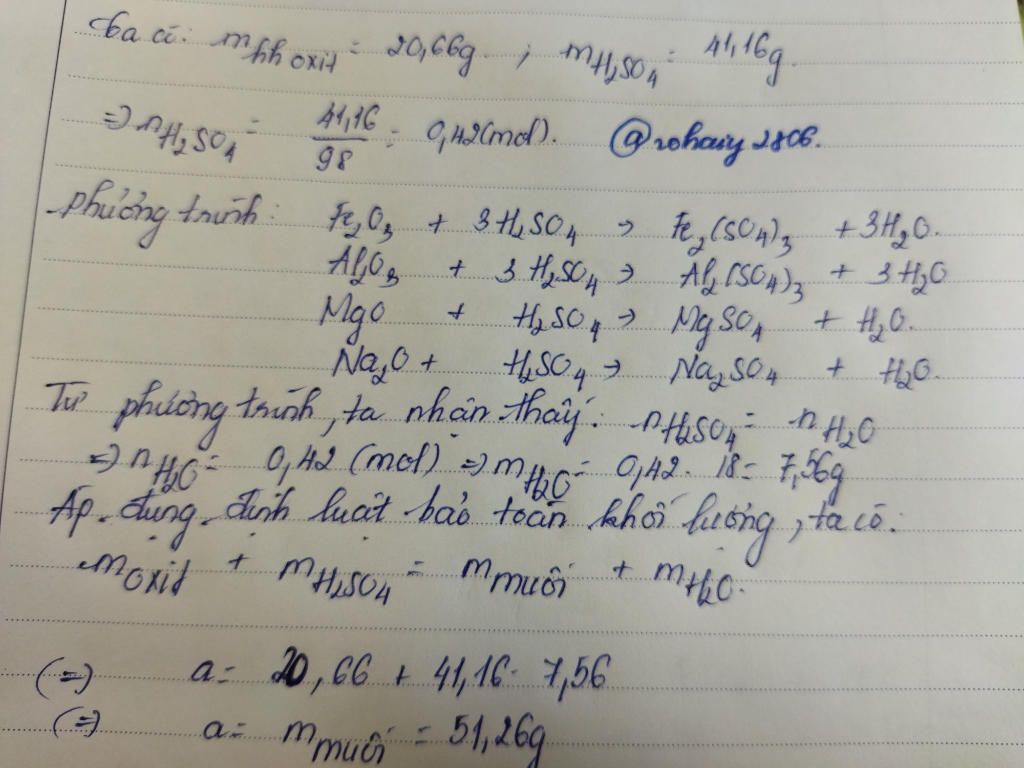 Ta có: m hh oxit = 20,66g ; mH₂SO₄ = 41,16g.
=> nH₂SO₄ = 41,16/98 = 0,42(mol). @rohaiy2806.
Phương trình: Fe₂O₃ + 3H₂SO₄ → Fe₂(SO₄)₃ + 3H₂O.
Al₂O₃ + 3H₂SO₄ → Al₂(SO₄)₃ + 3H₂O
MgO + H₂SO₄ → MgSO₄ + H₂O.
Na₂O + H₂SO₄ → Na₂SO₄ + H₂O.
Từ phương trình, ta nhận thấy: nH₂SO₄ = nH₂O
=> nH₂O = 0,42 (mol) => mH₂O = 0,42. 18 = 7,56g
Áp dụng định luật bảo toàn khối lượng, ta có:
m oxit + mH₂SO₄ = m muối + mH₂O.
(=) a = 20,66 + 41,16 - 7,56
(=) a = m muối = 51,26g